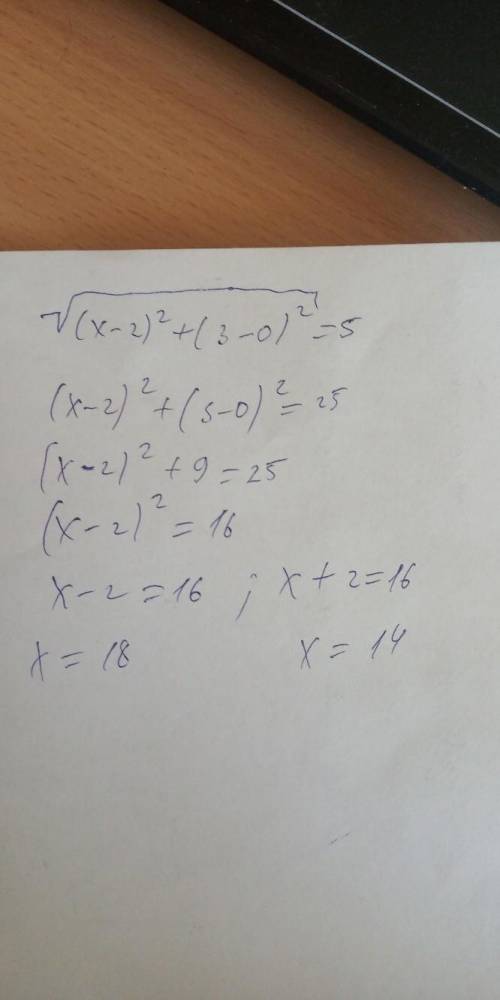 √((x-2)²+(3-0)²)=5
(x-2)²+(3-0)²=25
(x-2)²+9=25
(x-2)²=16
x-2=16 ; x+2=16
x=18 x=14